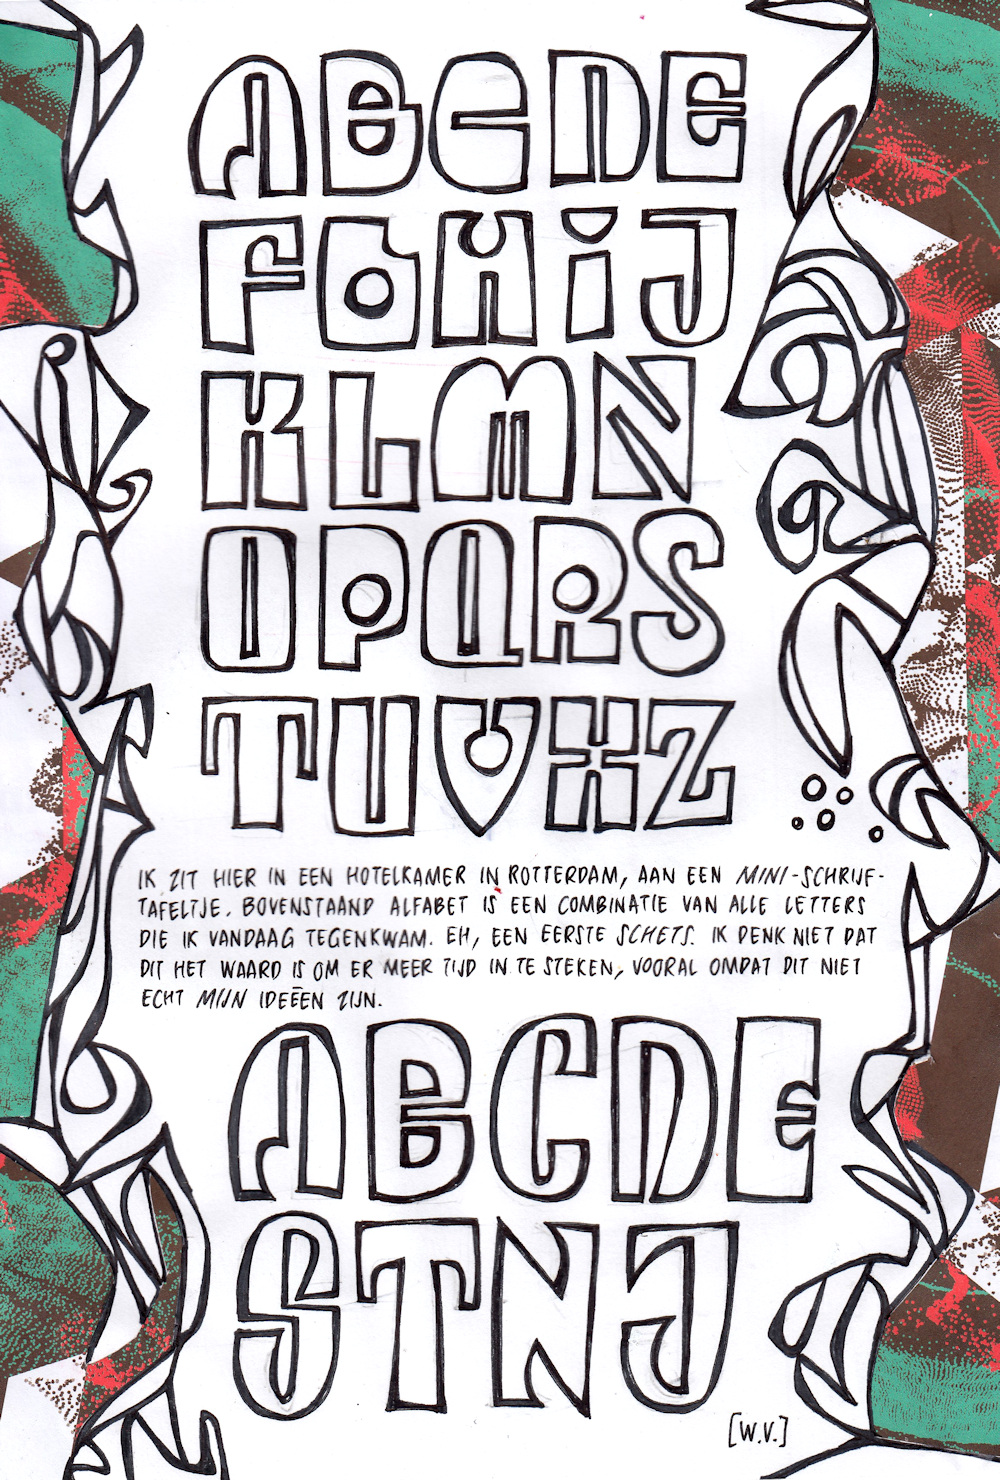 ABCDE
FGHIJ
KLMN
OPQRS
TUVXZ
IK ZIT HIER IN EEN HOTELKAMER IN ROTTERDAM, AAN EEN MINI-SCHRIJF-
TAFELTJE. BOVENSTAAND ALFABET IS EEN COMBINATIE VAN ALLE LETTERS
DIE IK VANDAAG TEGENKWAM. EH, EEN EERSTE SCHETS. IK DENK NIET DAT
DIT HET WAARD IS OM ER MEER TIJD IN TE STEKEN, VOORAL OMDAT DIT NIET
ECHT MIJN IDEEËN ZIJN.
ABCDE
STNJ
[W.V.]